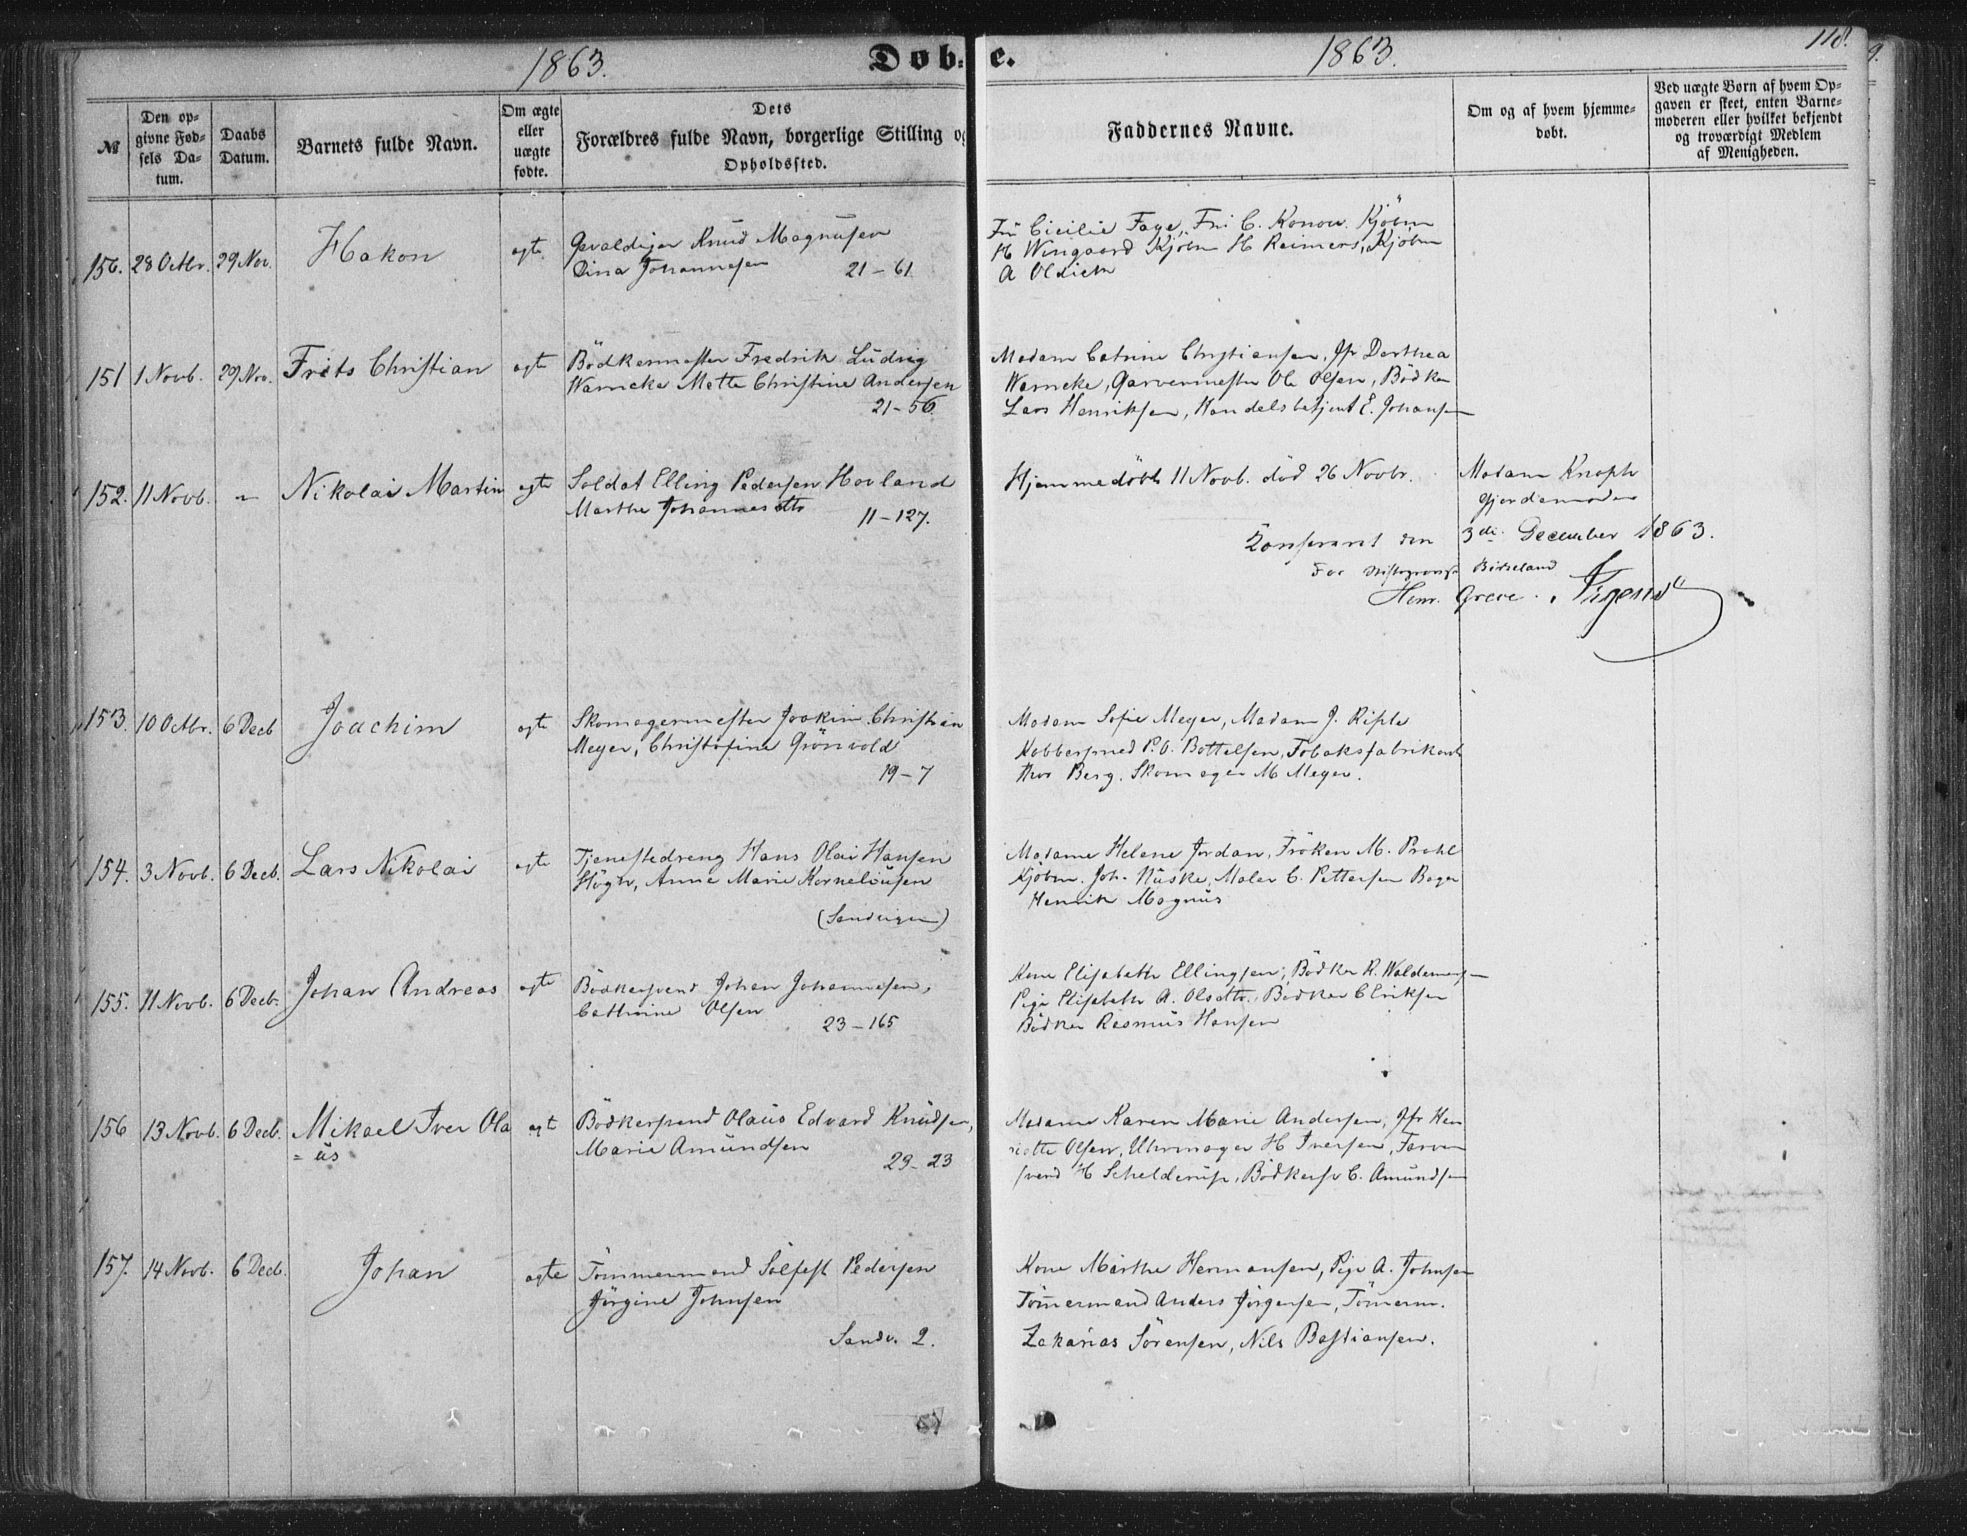 1863. Døb= e. 1863. 118.
№
Den op-
givne Fød-
sels Da-
tum.
Daabs
Datum.
Barnets fulde Navn.
Om ægte
eller
uægte
fødte.
Dets
Forældres fulde Navn, borgerlige Stilling og
Opholdssted.
Faddernes Navne.
Om og af hvem hjemme-
døbt.
Ved uægte Børn af hvem Op-
gaven er skeet, enten Barne-
moderen eller hvilket bekjendt
og troværdigt Medlem
af Menigheden.
150. 28 Octbr. 29 Nov. Hakon ægte
Gevaldiger Knud Magnusen
Dina Johannesen 21-61
Fru Cicilie Faye, C. Konow. Kjöbm
H Wingaard Kjöbm H Reimers, Kjöbm
A
151 1 Novb. 29 Nov. Frits Christian ægte
Bödkermester Fredrik Ludvig
Warncke Mette Christine Andersen
21-56.
Madam Catrine Christiansen, Jfr Dorthea
Warncke, Garvermester Ole Olsen, Bödker
Lars Henriksen, Handelsbetjent E. Johansen
152. 11 Novb. " Nikolai Martin ægte
Soldat Elling Pedersen Hovland
Marthe Johannesdttr 11-127.
Hjemmedöbt 11 Novb. död 26 Novbr.
Madam Knoph
Gjordemoder
Konfereret den 3die December 1863.
For Stiftsprovst Birkeland
Henr. Greve.
153. 10 Octbr. 6 Decb Joachim ægte
Skomagermester Joakim Christian
Meyer, Christofine Grönvold
19-7
Madam Sofie Meyer, Madam J. Riple
Kobbersmed P. O. Bottelsen, Tobaksfabrikant
Thor Berg. Skomager M Meyer.
154. 3 Novb. 6 Decb. Lars Nikolai ægte
Tjenestedreng Hans Olai Hansen
Högh, Anne Marie Korneliusen
(Sandvigen)
Madame Helene Jordan, Fröken M. Prahl
Kjöbm. Joh. Huske, Maler C. Pettersen Bager
Henrik Magnus
155. 11 Novb. 6 Decb. Johan Andreas ægte
Bödkersvend Johan Johannesen,
Cathrine Olsen
23-165
Kone Elisabeth Ellingsen, Bödker R. Waldemarsen
Pige Elisabeth A. Olsdttr. Bödker C Eriksen
Bödker Rasmus Hansen
156 13 Novb. 6 Decb. Mikael Iver Ola ægt
= us
Bödkersvend Olaus Edvard Knudsen,
Marie Amundsen
23-23
Madame Karen Marie Andersen, Jfr Hen
riette Olsen, Uhrmager H Iversen, Farver
svend H Schelderup, Bödkersv C. Amundsen
157. 14 Novb. 6 Decb. Johan ægte
Tömmermand Solfest Pedersen
Jörgine Johnsen
Sandv. 2.
Kone Marthe Hermansen, Pige A. Johnsen
Tömmermand Anders Jörgensen, Tömerm.
Zakarias Sörensen, Nils Bastiansen.